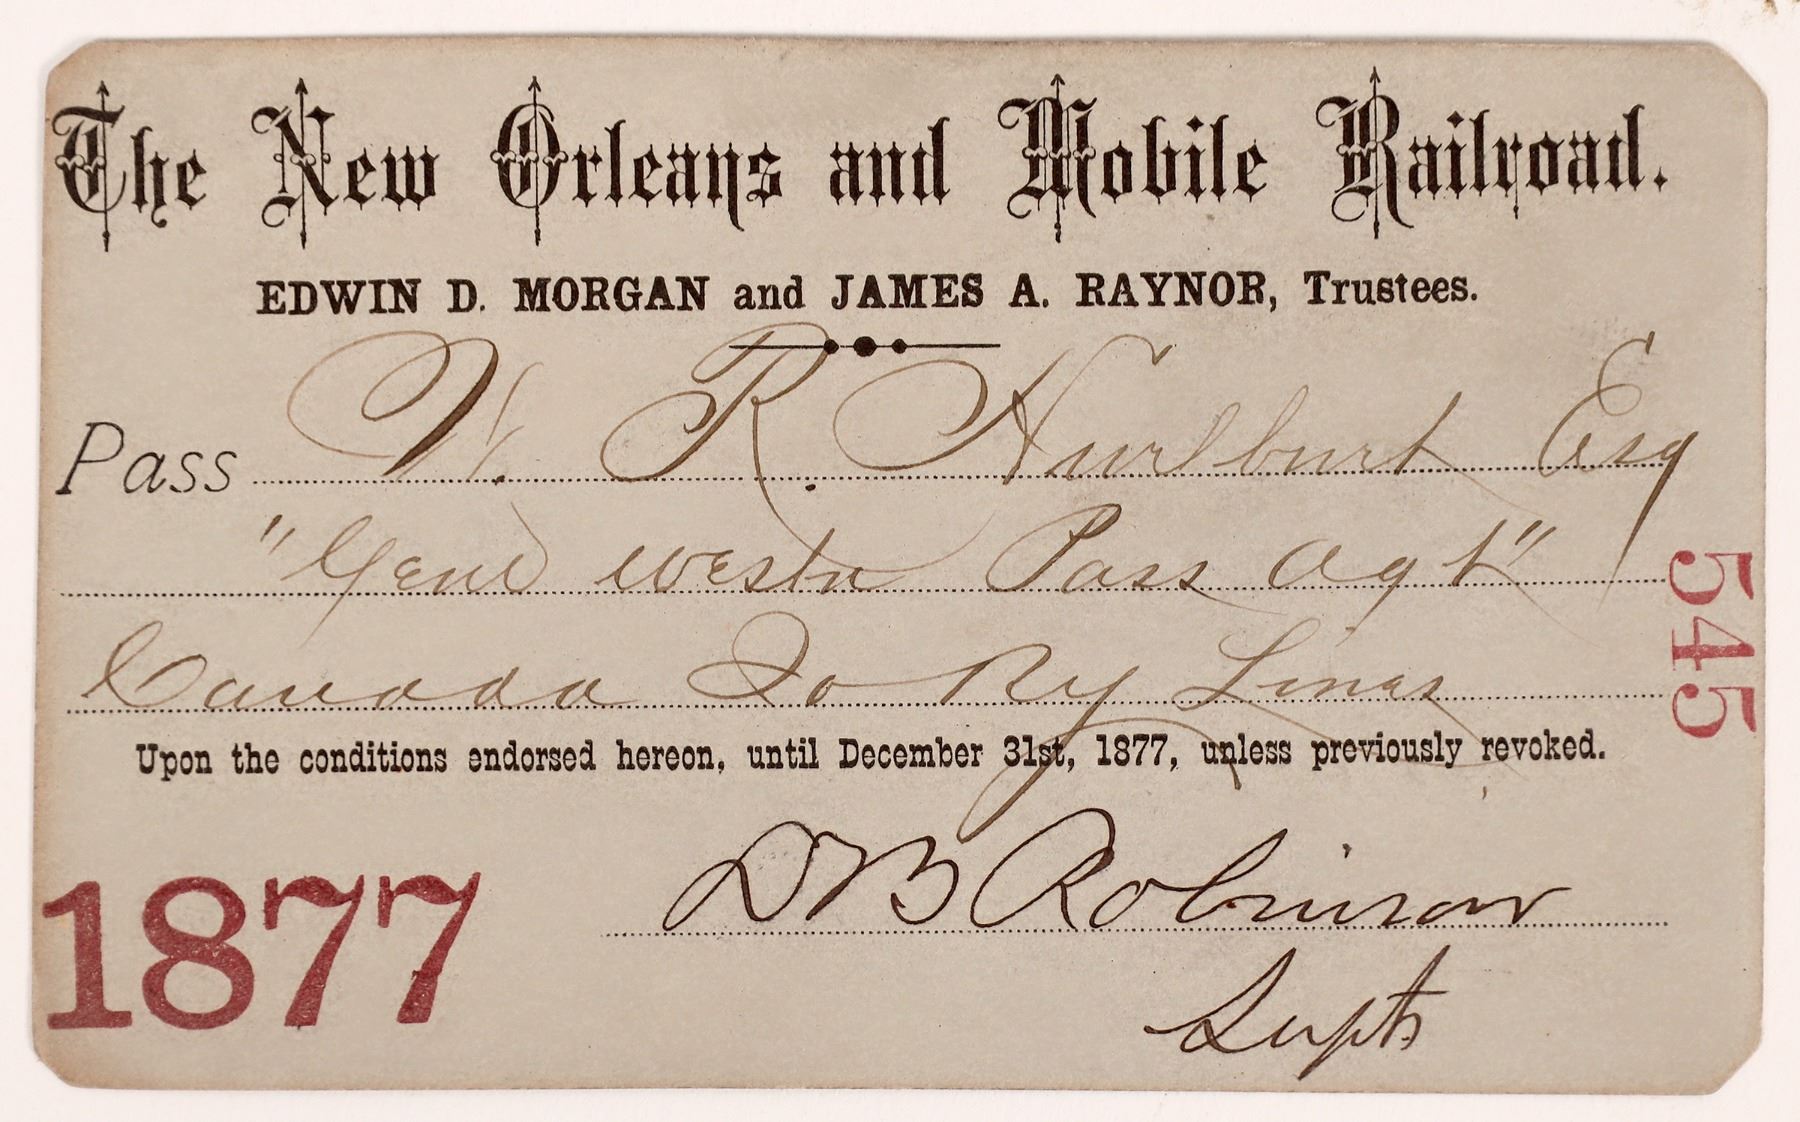 The New Orleans and Mobile Railroad.
EDWIN D. MORGAN and JAMES A. RAYNOR, Trustees.
Pass W. R. Hurlburt Esq
"Genl Westn Pass Agt"
Canada So Ry Lines
Upon the conditions endorsed hereon, until December 31st, 1877, unless previously revoked.
545
1877
D B Robinson
Supt